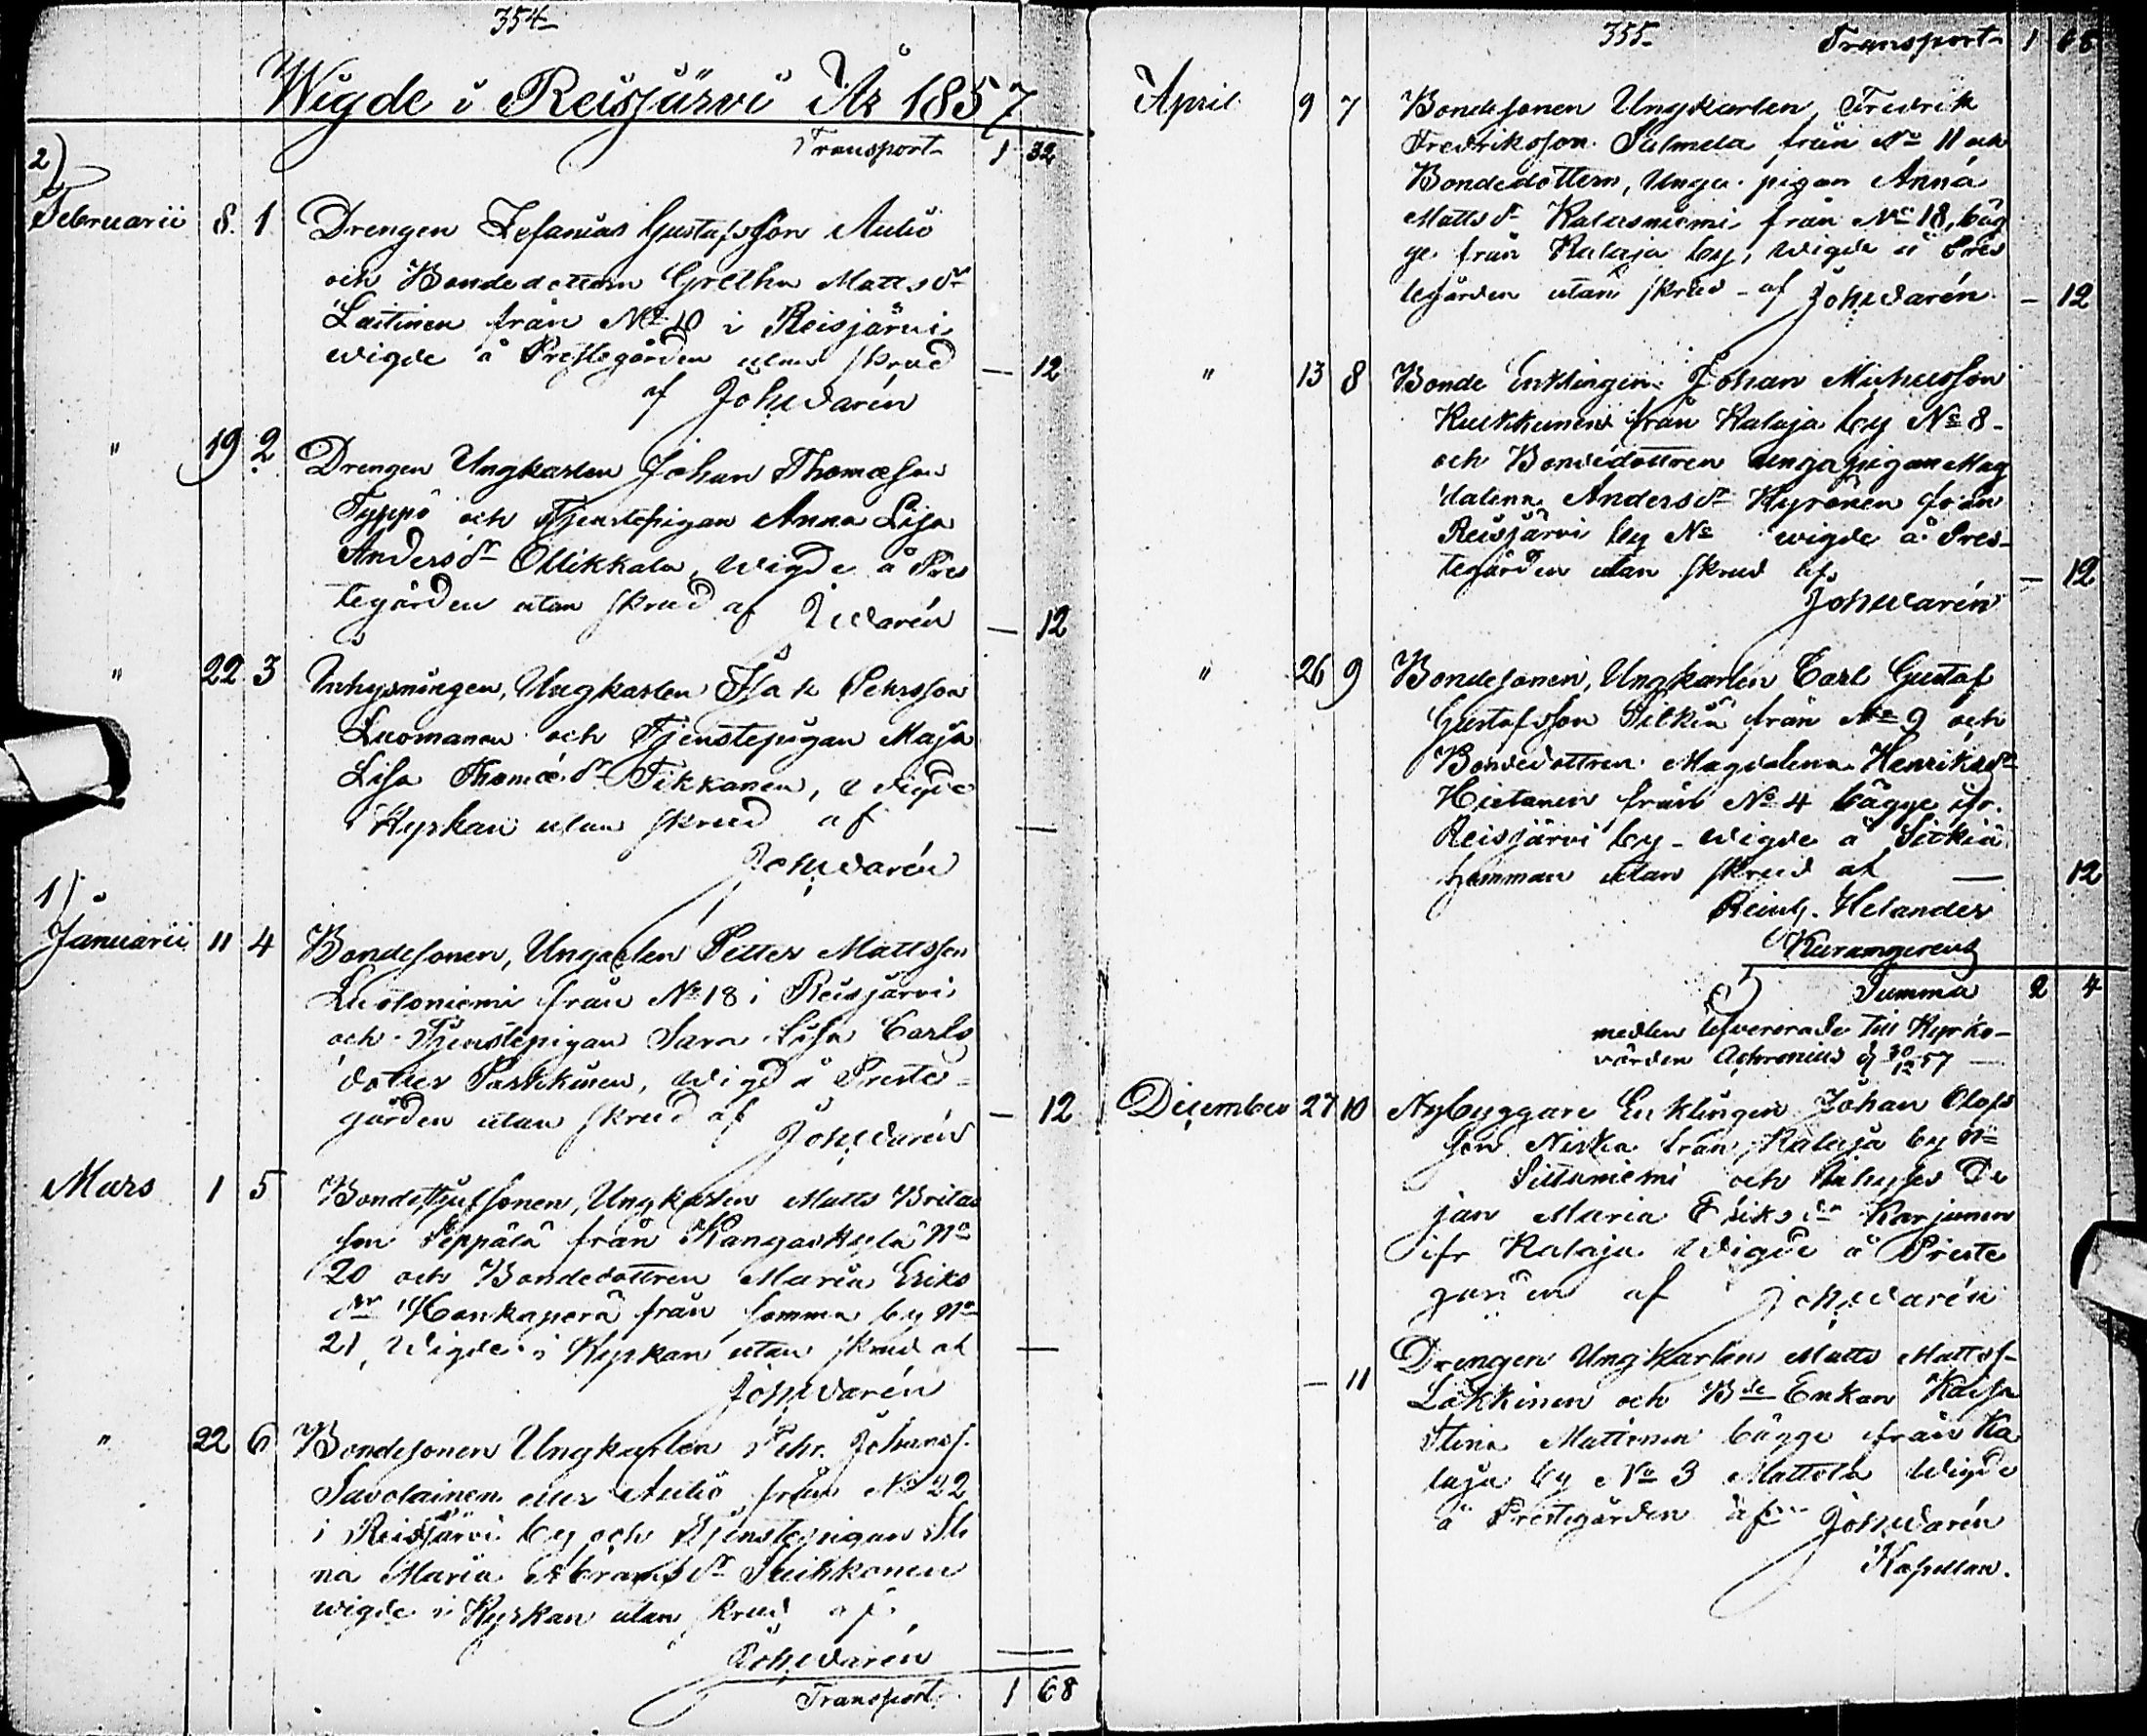 354
Wigde i Reisjärvi År 1857
Transport 1 32
2)
Februarii 8 1 Drengen Zefanias Gustafsson Aulio
och Bondedottern Gretha Mattsdr
Laitinen från No 10 i Reisjärvi
wigde å Prestegården utan skrud — 12
af Joh. Warén
" 19 2 Drengen Ungkarlen Johan Thomæson
Typpö och Tjenstepigan Anna Lisa
Andersdr Ollikkala, wigde å Pres
tegården utan skrud af J Warén — 12
" 22 3 Inhysningen, Ungkarlen Isak Pehrsson
Luomanen och Tjenstepigan Maja
Lisa Thomædr Tikkanen, wigde
i Kyrkan utan skrud af —
Joh Warén
1)
Januarii 11 4 Bondesonen, Ungkarlen Petter Mattsson
från No 18 i Reisjärvi
och Tjenstepigan Sara Lisa Carls
dotter Paskkinen, wigd å Preste-
gården utan skrud af Joh Warén — 12
Mars 1 5 Ungkarlen Matts Britas
son Seppälä från Kangaskylä No
20 och Bondedottren Maria Eriks
dr Honkaperä från samma by No
21, Wigde i Kyrkan utan skrud af —
Joh Warén
" 22 6 Bondesonen Ungkarlen Pehr Johanss.
Savolainen eller Aulio från No 22
i Reisjärvi by och Tjenstepigan Sti
na Maria Abramsdr Puihkonen
wigde i Kyrkan utan skrud af
Joh Warén
Transport 1 68
355
Transport 1 68
April 9 7 Bondesonen Ungkarlen Fredrik
Fredriksson Salmela från No 11 och
Bondedottern, Unga pigan Anna
Mattsdr Kalasniemi från No 18, båg
ge från Kalaja by, wigde å Pres
tegården utan skrud af Joh Warén — 12
" 13 8 Bonde Enklingen Johan Michelsson
Kukkunen från Kalaja by No 8
och Bondedottren unga pigan Mag
dalena Andersdr Kyrönen från
Reisjärvi by No wigde å Pres-
tegården utan skrud af — 12
Joh Warén
" 26 9 Bondesonen, Ungkarlen Carl Gustaf
Gustafsson Pitkä från No 9 och
Bondedottren Magdalena Henriksdr
Hietanen från No 4 bägge ifr.
Reisjärvi by wigde å
hemman utan skrud af — 12
Reinh. Helander
Summa 2 4
medlen lefvererade till Kyrko-
värden Achrenius d 30/12 57
December 27 10 Nybyggare Enklingen Johan Olofs
son Niska från Kalaja by No
och Inhyses De
jan Maria Eriksdr Karjunen
ifr Kalaja Wigde å Preste
gården af Joh Warén
— 11 Drengen Ungkarlen Matts Mattss.
Lokkinen och Bde Enkan Kaisa
Stina Mattinen bägge från Ka
laja by No 3 Mattola Wigde
å Prestegården af Joh Warén
Kapellan.